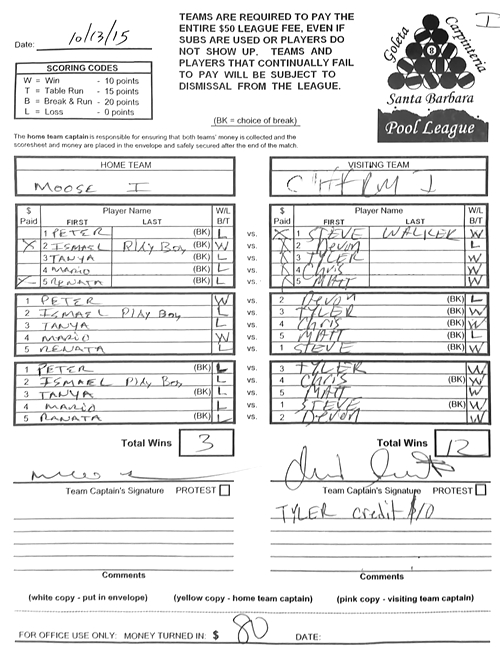 TEAMS ARE REQUIRED TO PAY THE
ENTIRE $50 LEAGUE FEE, EVEN IF
SUBS ARE USED OR PLAYERS DO
NOT SHOW UP. TEAMS AND
PLAYERS THAT CONTINUALLY FAIL
TO PAY WILL BE SUBJECT TO
DISMISSAL FROM THE LEAGUE.
I
Date: 10/13/15
SCORING CODES
W = Win - 10 points
T = Table Run - 15 points
B = Break & Run - 20 points
L = Loss - 0 points
Goleta Carpinteria
8
Santa Barbara
Pool League
(BK = choice of break)
The home team captain is responsible for ensuring that both teams' money is collected and the
scoresheet and money are placed in the envelope and safely secured after the end of the match.
HOME TEAM VISITING TEAM
MOOSE I
$ Paid Player Name FIRST LAST W/L B/T $ Paid Player Name FIRST LAST W/L B/T
1 PETER (BK) L vs. X 1 STEVE WALKER W
X 2 ISMAEL Play Boy (BK) W vs. 2 Devon L
3 TANYA (BK) L vs. 3 TYLER W
4 MARIO (BK) L vs. 4 Chris W
5 RENATA (BK) L vs. 5 MATT W
1 PETER W vs. 2 Devon (BK) L
2 ISMAEL Play Boy L vs. 3 TYLER (BK) W
3 TANYA L vs. 4 Chris (BK) W
4 MARIO W vs. 5 MATT (BK) L
5 RENATA L vs. 1 STEVE (BK) W
1 PETER (BK) L vs. 3 TYLER W
2 ISMAEL Play Boy L vs. 4 Chris (BK) W
3 TANYA (BK) L vs. 5 MATT W
4 MARIO L vs. 1 STEVE (BK) W
5 RANATA (BK) L vs. 2 Devon W
Total Wins 3 Total Wins 12
Team Captain's Signature PROTEST Team Captain's Signature PROTEST
TYLER credit $10
Comments Comments
(white copy - put in envelope) (yellow copy - home team captain) (pink copy - visiting team captain)
FOR OFFICE USE ONLY: MONEY TURNED IN: $ 80 DATE: